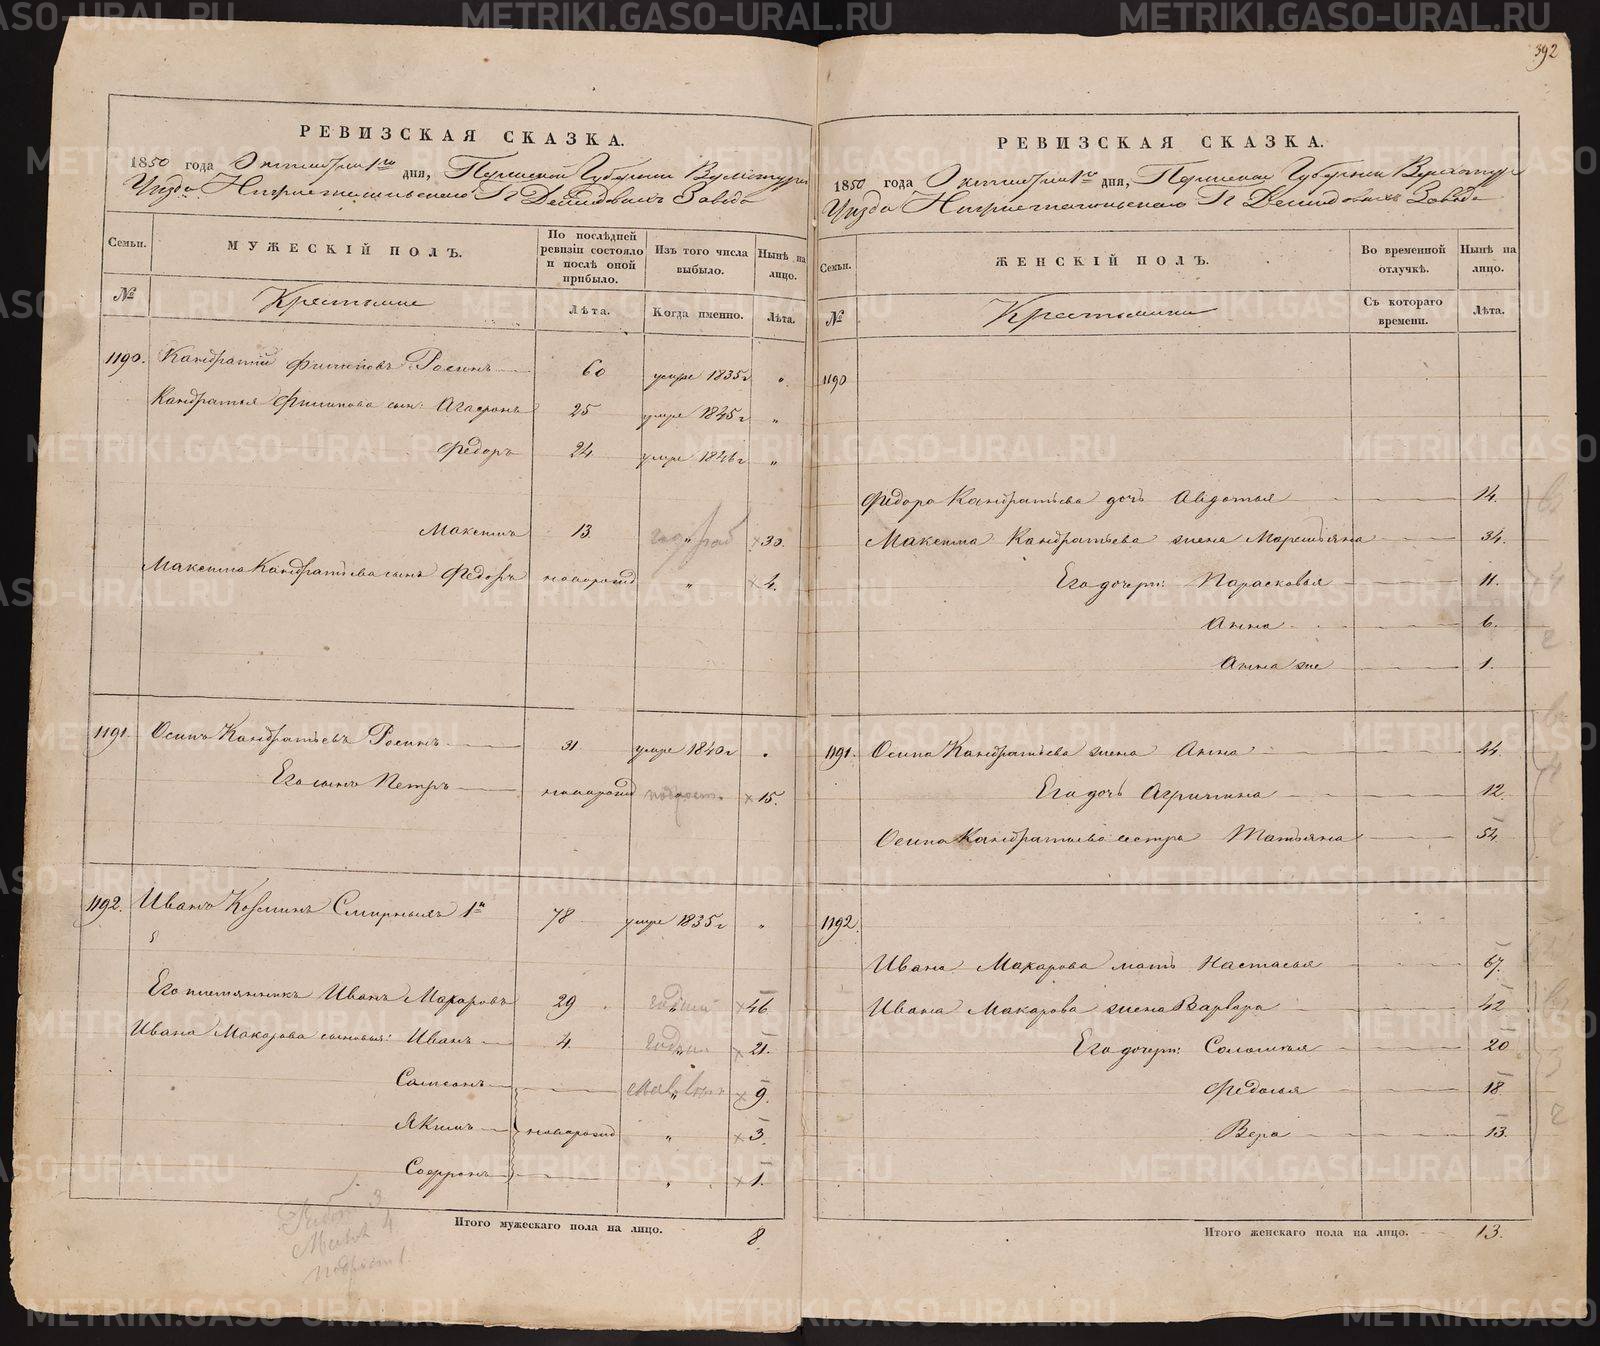 392
РЕВИЗСКАЯ СКАЗКА.
1850 года Октября 1го дня, Пермской Губернии Верхотур
Уезда Нижнетагильскаго Г Демидовых Завода
Семьи.
МУЖЕСКІЙ ПОЛЪ.
По послѣдней ревизіи состояло и послѣ оной прибыло.
Изъ того числа выбыло.
Нынѣ на лицо.
№
Крестьяне
Лѣта.
Когда именно.
Лѣта.
1190. Кандратий Филиповъ Росинъ 60 умре 1835г „
Кандратья Филипова сын: Агафонъ 25 умре 1845г „
Федоръ 24 умре 1846г „
Максимъ 13 „ × 30.
Максима Кандратьева сынъ Федоръ новорожд „ × 4.
1191. Осипъ Кандратьевъ Росинъ 31 умре 1840г „
Его сынъ Петръ новорожд подрост. × 15.
1192. Иванъ Козминъ Смирныхъ 1й 78 умре 1835г „
Его племянникъ Иванъ Макаровъ 29 годный × 46
Ивана Макарова сыновья: Иванъ 4 годн. × 21.
Самсонъ „ × 9.
Якимъ новорожд „ × 3
Софронъ „ × 1.
Работ 3
Малол 4
подрост 1.
Итого мужескаго пола на лицо. 8.
РЕВИЗСКАЯ СКАЗКА.
1850 года Октября 1го дня, Пермской Губернии Верхотур
Уезда Нижнетагильскаго Г Демидовыхъ Завода
Семьи.
ЖЕНСКІЙ ПОЛЪ.
Во временной отлучкѣ.
Нынѣ на лицо.
№
Крестьянки
Съ котораго времени.
Лѣта.
1190
Федора Кандратьева дочь Авдотья 14.
Максима Кандратьева жена Маремьяна 34.
Его дочери: Парасковья 11.
Анна 6.
Анна же 1.
1191. Осипа Кандратьева жена Анна 44.
Его дочь Агрипина 12.
Осипа Кандратьева сестра Татьяна 54.
1192.
Ивана Макарова мать Настасья 67.
Ивана Макарова жена Варвара 42
Его дочери: Соломия 20
Федосья 18.
Вера 13.
Итого женскаго пола на лицо. 13.
METRIKI.GASO-URAL.RU